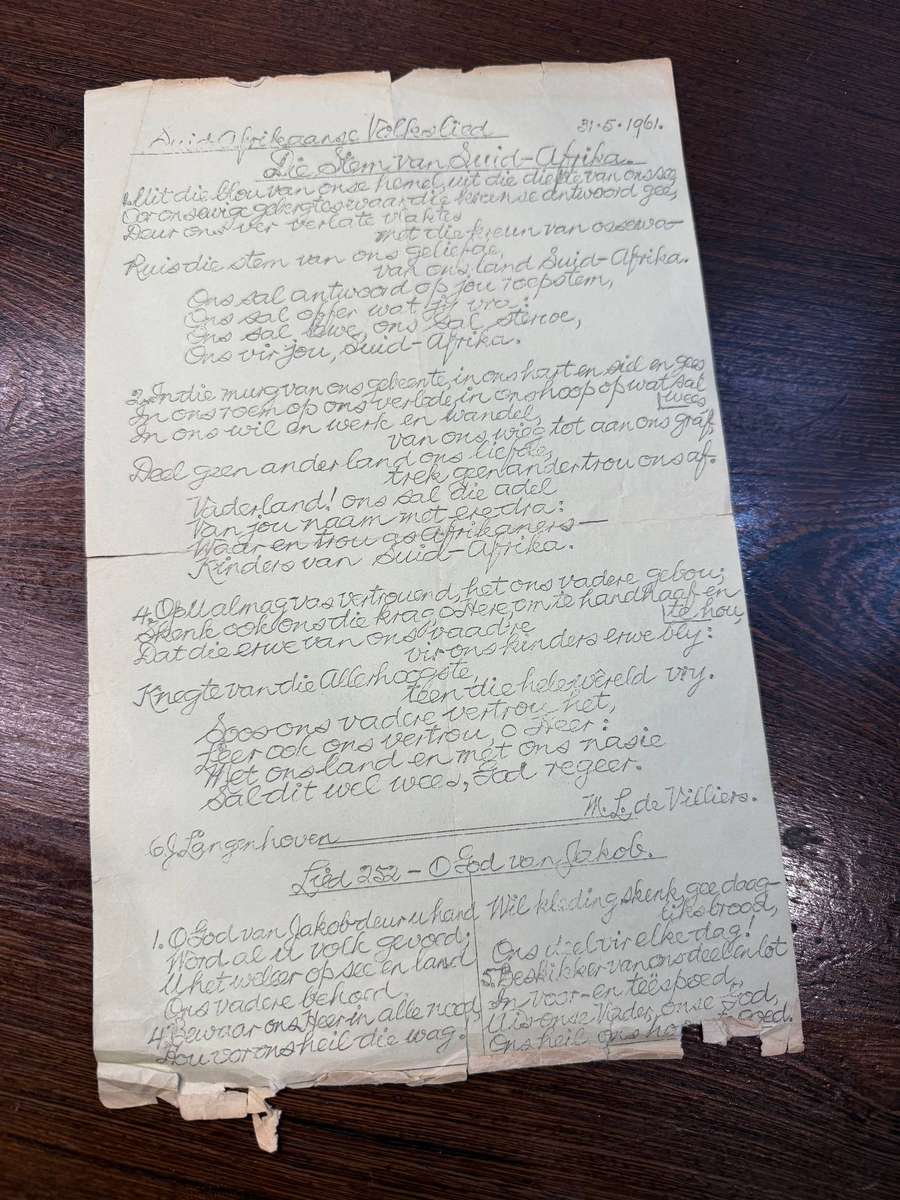 Suid Afrikaanse Volkslied
31-5-1961.
Die Stem van Suid-Afrika.
1. Uit die blou van onse hemel, uit die diepte van ons see,
Oor ons ewige gebergtes waar die kranse antwoord gee,
Deur ons ver verlate vlaktes
met die kreun van ossewa-
Ruis die stem van ons geliefde,
van ons land Suid-Afrika.
Ons sal antwoord op jou roepstem,
Ons sal offer wat jy vra:
Ons sal lewe, ons sal sterwe,
Ons vir jou, Suid-Afrika.
2. In die murg van ons gebeente, in ons hart en siel en gees,
In ons roem op ons verlede, in ons hoop op wat sal
wees
In ons wil en werk en wandel,
van ons wieg tot aan ons graf.
Deel geen ander land ons liefde,
trek geen ander trou ons af.
Vaderland! ons sal die adel
Van jou naam met ere dra:
Waar en trou as Afrikaners—
Kinders van Suid-Afrika.
4. Op U almag vas vertrouend, het ons vadere gebou;
Skenk ook ons die krag, o Here om te handhaaf en
te hou,
Dat die erwe van ons vaadre
vir ons kinders erwe bly:
Knegte van die Allerhoogste
teen die hele wêreld vry.
Soos ons vadere vertrou het,
Leer ook ons vertrou, O Heer:
Met ons land en met ons nasie
Sal dit wel wees, God regeer.
M. L. de Villiers.
C J Langenhoven
Lied 252 - O God van Jakob.
1. O God van Jakob deur u hand
Word al u volk gevoed;
U het weleer op see en land
Ons vadere behoed.
4. Bewaar ons Heer in alle nood,
Hou vor ons heil die wag.
Wil kleding skenk, goe daag-
liks brood,
Ons deel vir elke dag!
5. Beskikker van ons deel en lot
In voor- en teëspoed,
U is onse Vader, onse God,
Ons heil, ons goed.